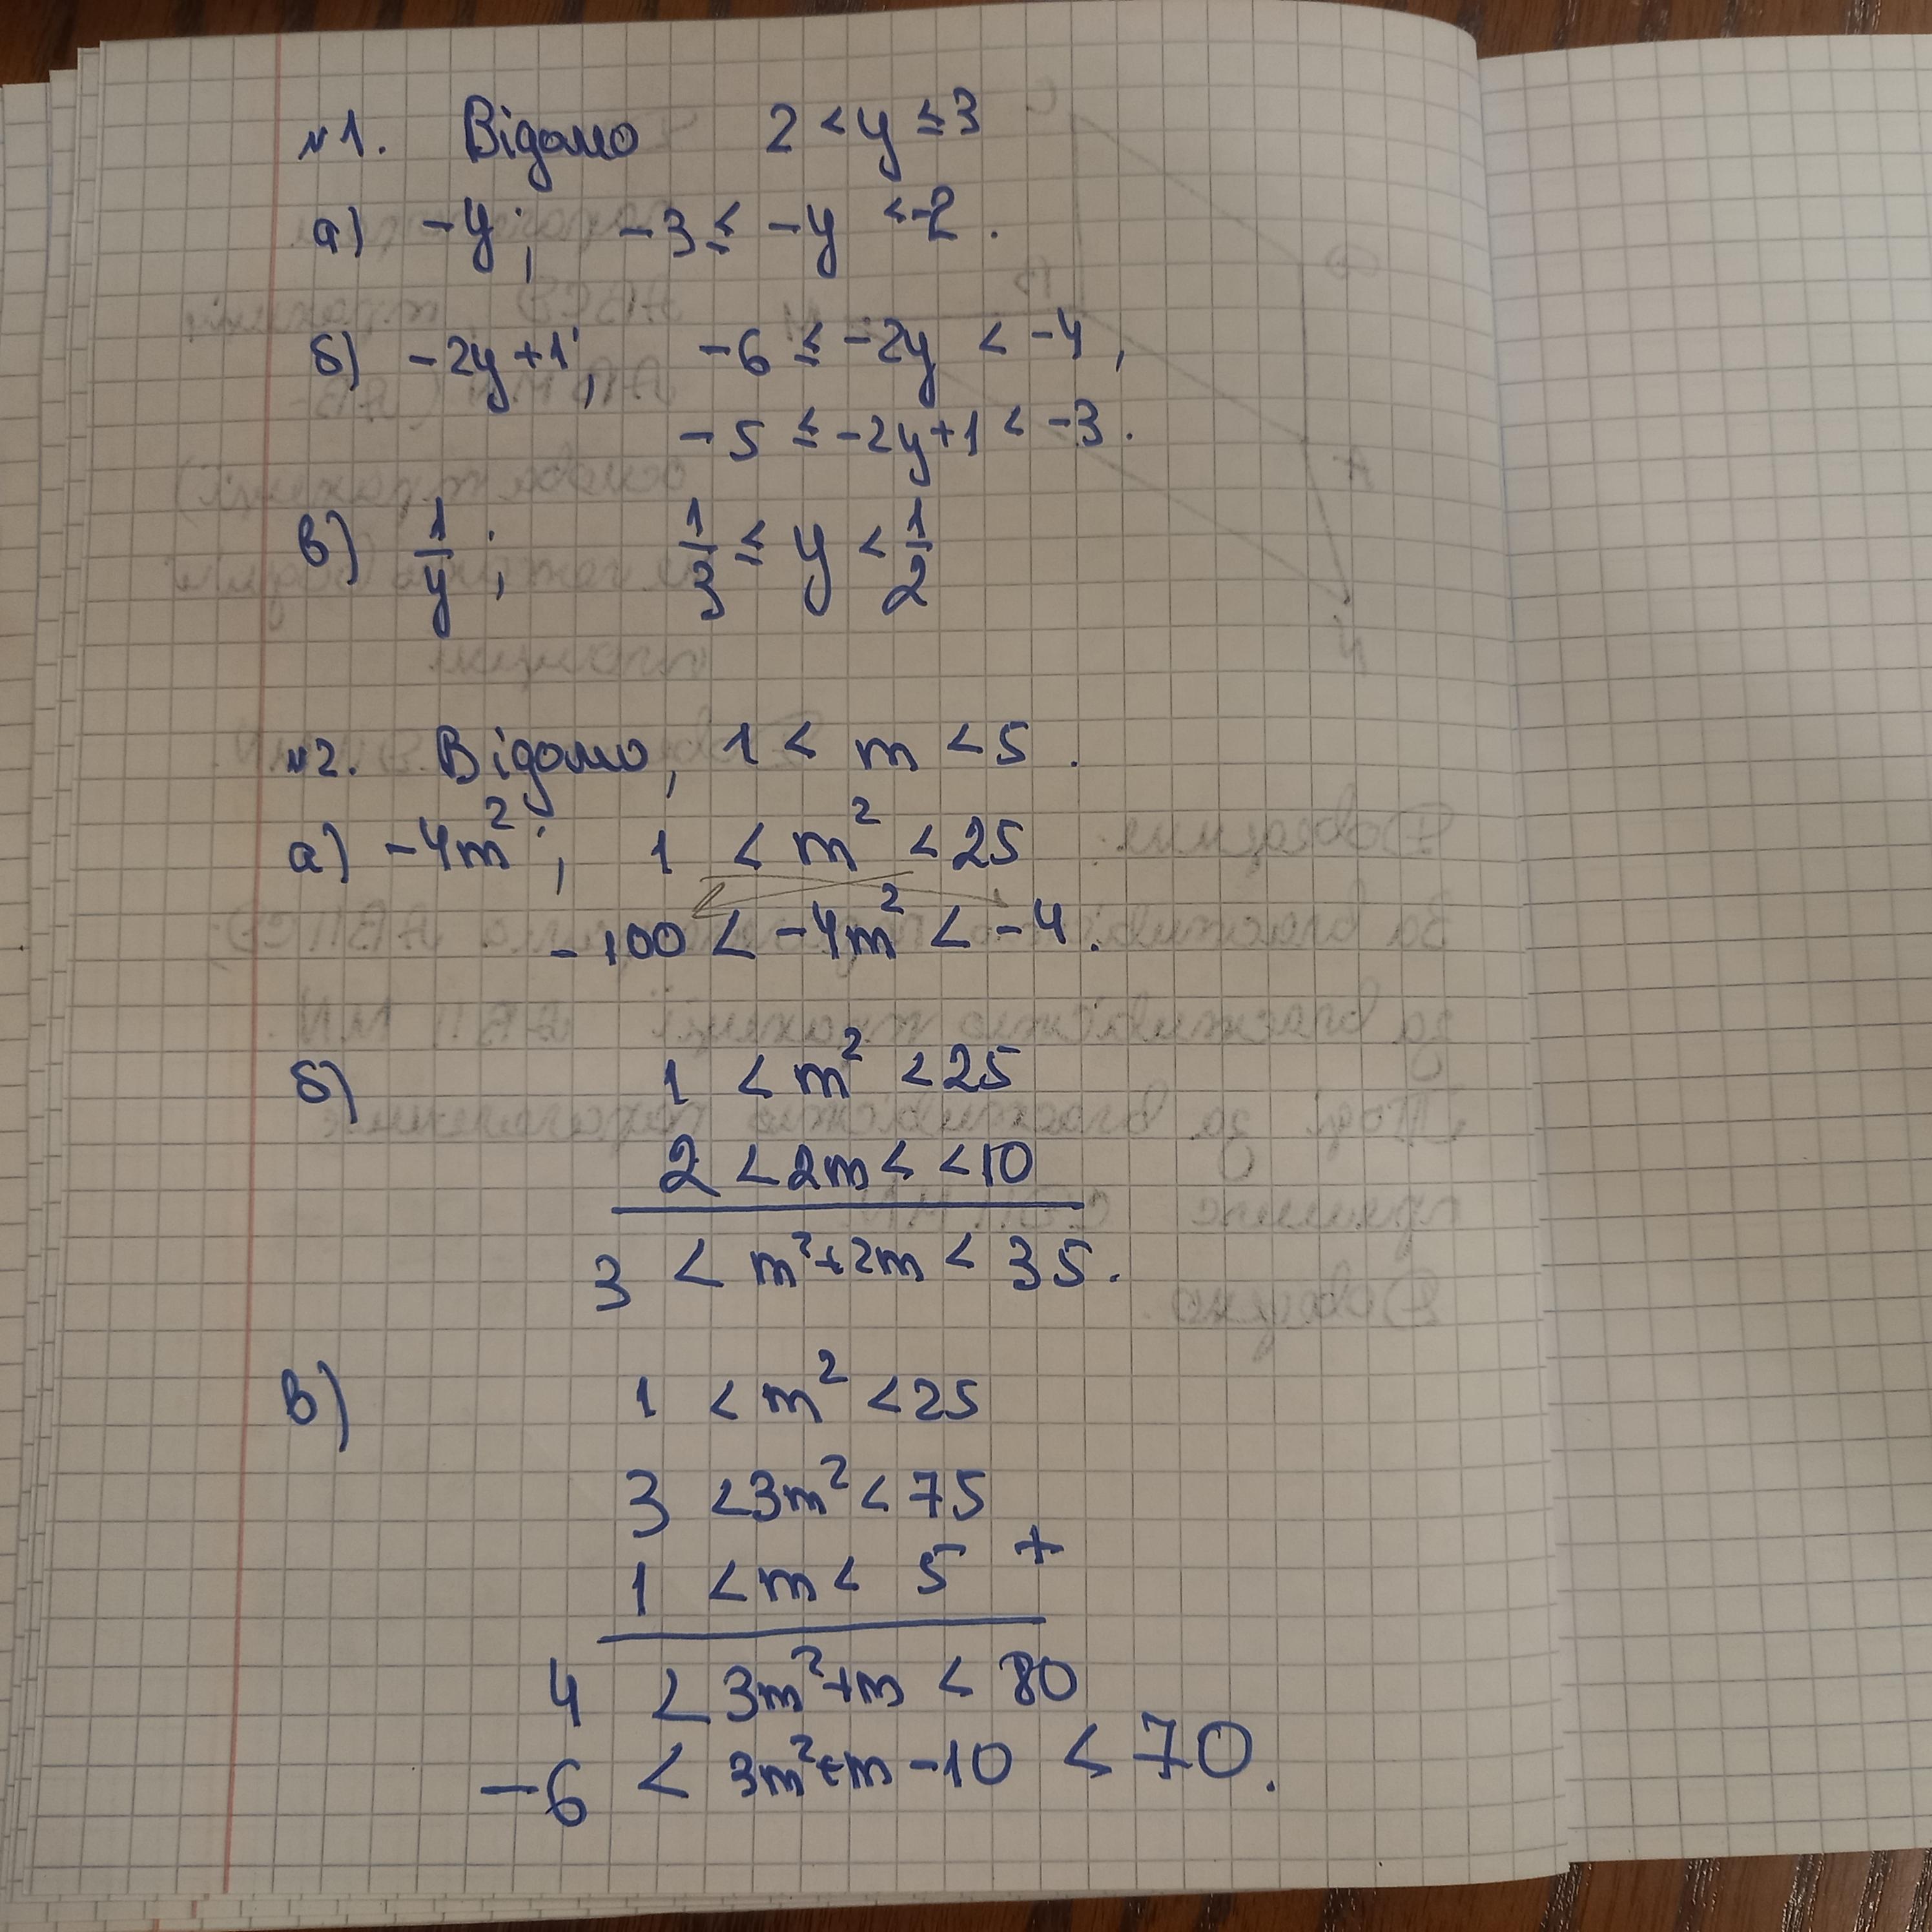 №1. Відомо 2 < y ≤ 3
а) -y; -3 ≤ -y < -2.
б) -2y+1; -6 ≤ -2y < -4,
-5 ≤ -2y+1 < -3.
в) 1/y; 1/3 ≤ y < 1/2
№2. Відомо, 1 < m < 5.
а) -4m²; 1 < m² < 25
-100 < -4m² < -4.
б) 1 < m² < 25
2 < 2m < < 10
3 < m²+2m < 35.
в) 1 < m² < 25
3 < 3m² < 75
1 < m < 5 +
4 < 3m²+m < 80
-6 < 3m²+m-10 < 70.